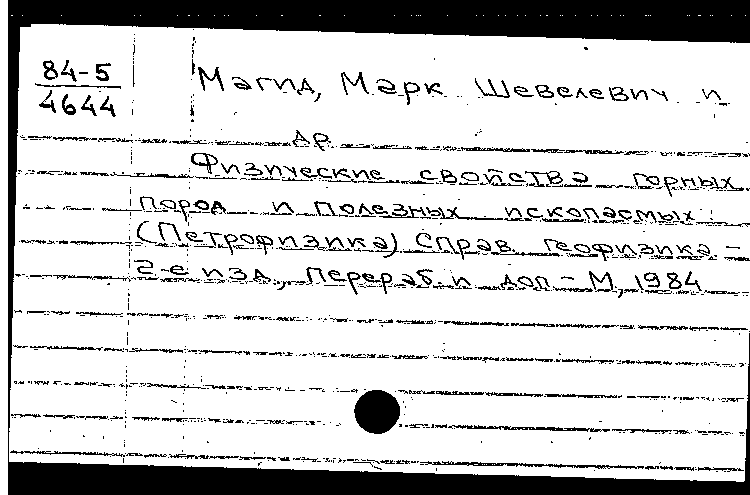 84-5
4644
Магид, Марк Шевелевич и
др.
Физические свойства горных
пород и полезных ископаемых.
(Петрофизика) Справ. геофизика -
2-е изд., перераб. и доп - М, 1984